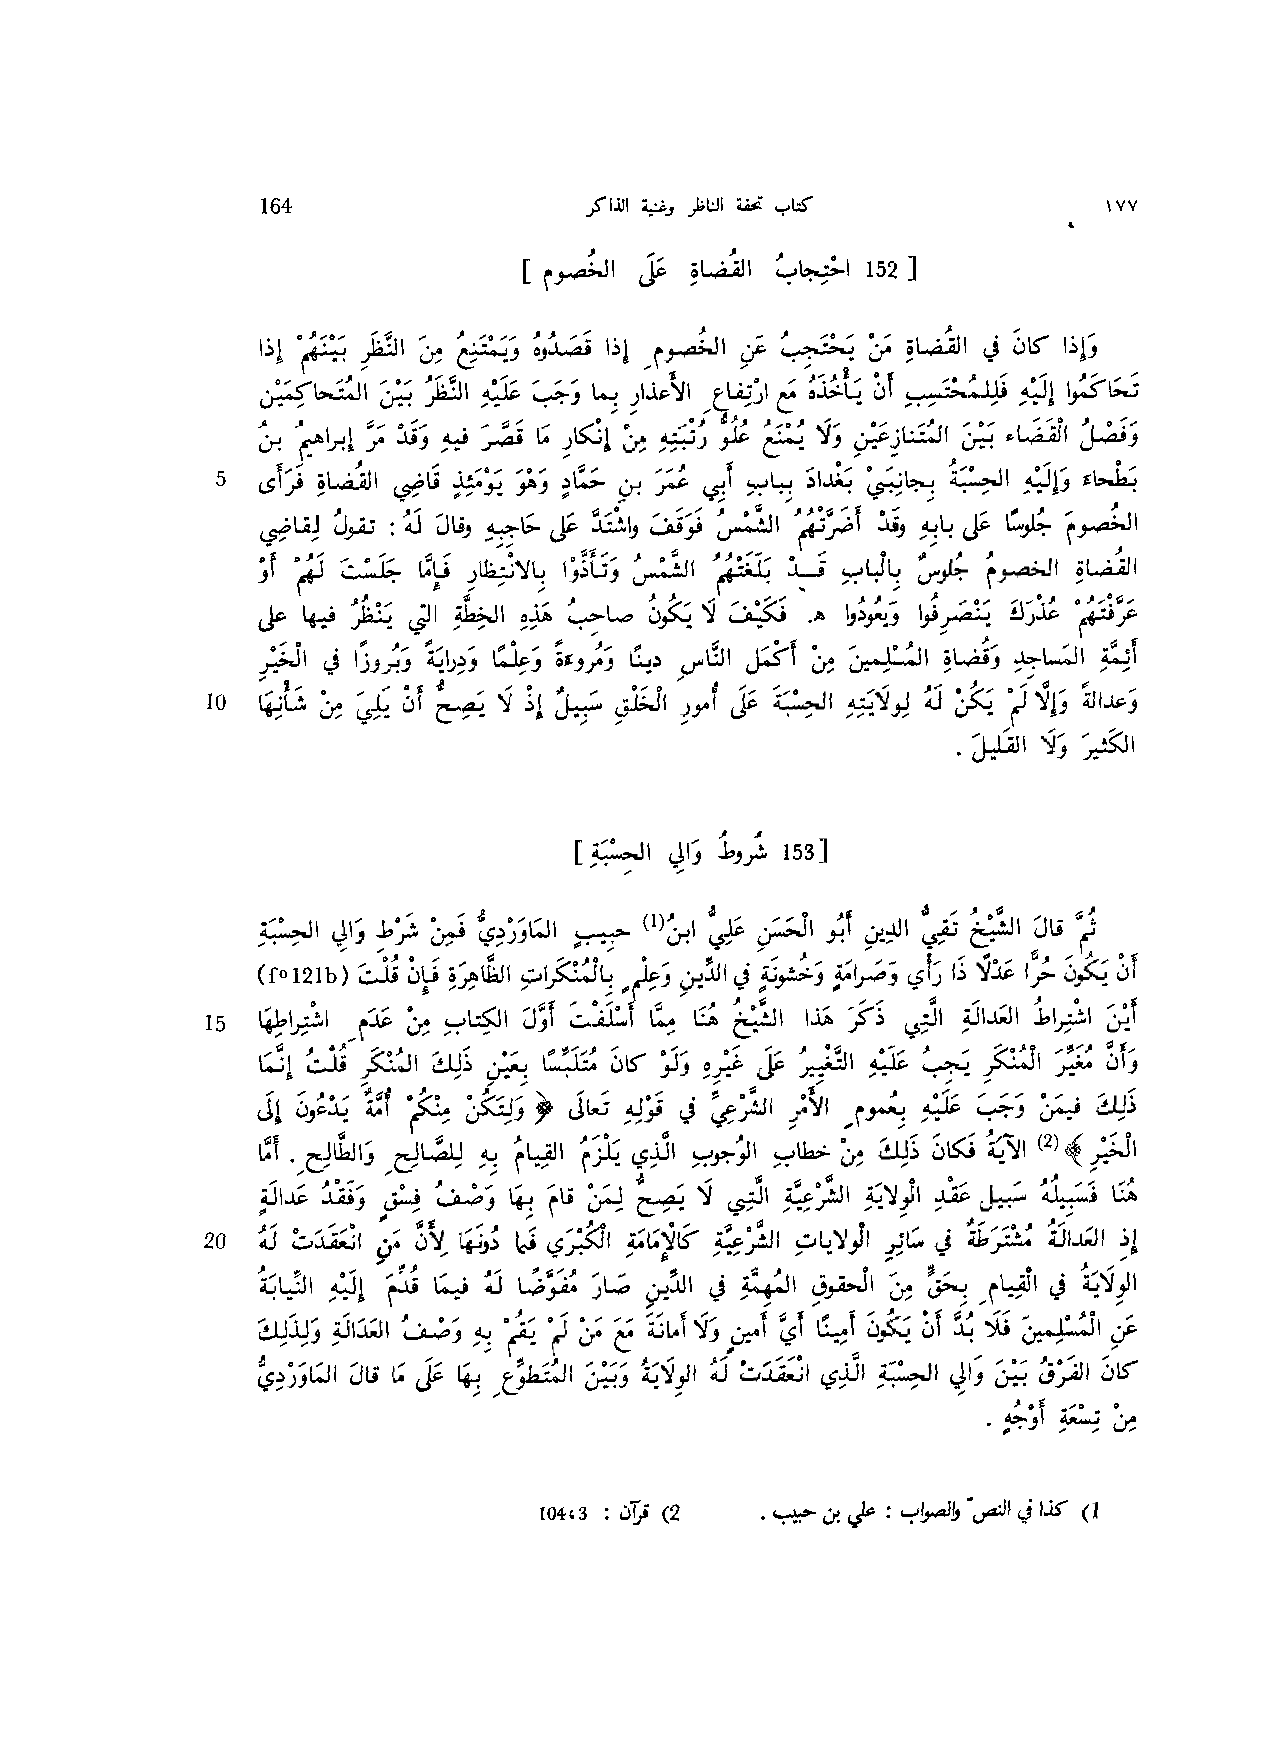 ١٧٧ كتاب تحفة الناظر وغنية الذاكر 164
[ 152 احْتِجابُ القُضاةِ عَلَى الخُصوم ]
وَإذا كانَ في القُضاةِ مَنْ يَحْتَجِبُ عَنِ الخُصومِ إذا قَصَدُوهُ وَيَمْتَنِعُ مِنَ النَّظَرِ بَيْنَهُمْ إذا
تَحَاكَمُوا إلَيْهِ فَلِلمُحْتَسِبِ أنْ يَأْخُذَهُ مَعَ ارْتِفاعِ الأعْذارِ بِما وَجَبَ عَلَيْهِ النَّظَرُ بَيْنَ المُتَحاكِمَيْنِ
وَفَصْلُ القَضاءِ بَيْنَ المُتَنازِعَيْنِ وَلا يُمْنَعُ عُلُوُّ رُتْبَتِهِ مِنْ إنْكارِ مَا قَصَّرَ فيهِ وَقَدْ مَرَّ إبراهيمُ بنُ
بَطْحاءَ وَإلَيْهِ الحِسْبَةُ بِجانِبَيْ بَغْدادَ بِبابِ أبي عُمَرَ بنِ حَمَّادٍ وَهْوَ يَوْمَئِذٍ قَاضِي القُضاةِ فَرَأى 5
الخُصومَ جُلوسًا عَلى بابِهِ وَقَدْ أضَرَّتْهُمُ الشَّمْسُ فَوَقَفَ واشْتَدَّ عَلى حَاجِبِهِ وقالَ لَهُ : تقولُ لِقاضِي
القُضاةِ الخصومُ جُلوسٌ بِالْبابِ قَــدْ بَلَغَتْهُمُ الشَّمْسُ وَتَأَذَّوْا بِالانْتِظارِ فَإمَّا جَلَسْتَ لَهُمْ أوْ
عَرَّفْتَهُمْ عُذْرَكَ يَنْصَرِفُوا وَيَعُودُوا ه. فَكَيْفَ لا يَكُونُ صاحِبُ هَذِهِ الخِطَّةِ التي يَنْظُرُ فيها على
أئِمَّةِ المَساجِدِ وَقُضاةِ المُسْلِمينَ مِنْ أكْمَلِ النَّاسِ دينًا وَمُروءَةً وَعِلْمًا وَدِرايَةً وَبُروزًا في الْخَيْرِ
وَعدالةً وَإلَّا لَمْ يَكُنْ لَهُ لِولايَتِهِ الحِسْبَةَ عَلَى أمورِ الْخَلْقِ سَبِيلٌ إذْ لا يَصِحُّ أنْ يَلِيَ مِنْ شَأنِهَا 10
الكَثيرَ وَلَا القَليلَ .
[153 شُروطُ وَالِي الحِسْبَةِ ]
ثُمَّ قالَ الشَّيْخُ تَقِيُّ الدين أبُو الْحَسَنِ عَلِيُّ ابنُ(1) حبيبٍ المَاوَرْدِيُّ فَمِنْ شَرْطِ وَالِي الحِسْبَةِ
أنْ يَكُونَ حُرًّا عَدْلًا ذا رَأيٍ وَصَرامَةٍ وَخُشونَةٍ في الدِّينِ وَعِلْمٍ بِالْمُنْكَراتِ الظَّاهِرَةِ فَإنْ قُلْتَ (fo 121b)
أيْنَ اشْتِراطُ العَدالَةِ الَّتي ذَكَرَ هَذا الشَّيْخُ هُنَا مِمَّا أسْلَفْتَ أوَّلَ الكِتابِ مِنْ عَدَمِ اشْتِراطِهَا 15
وَأنَّ مُغَيِّرَ الْمُنْكَرِ يَجِبُ عَلَيْهِ التَّغْيِيرُ عَلَى غَيْرِهِ وَلَوْ كانَ مُتَلَبِّسًا بِعَيْنِ ذَلِكَ المُنْكَرِ قُلْتُ إنَّمَا
ذَلِكَ فيمَنْ وَجَبَ عَلَيْهِ بِعُمومِ الأمْرِ الشَّرْعِيِّ في قَوْلِهِ تَعالَى ﴿ وَلِتَكُنْ مِنْكُمْ أمَّةٌ يَدْعُونَ إلَى
الْخَيْرِ ﴾(2) الآيَةُ فَكانَ ذَلِكَ مِنْ خطابِ الوُجوبِ الَّذي يَلْزَمُ القِيامُ بِهِ لِلصَّالِحِ وَالطَّالِحِ . أمَّا
هُنَا فَسَبِيلُهُ سَبِيل عَقْدِ الْوِلايَةِ الشَّرْعِيَّةِ الَّتِي لا يَصِحُّ لِمَنْ قامَ بِهَا وَصْفُ فِسْقٍ وَفَقْدُ عَدالَةٍ
إذِ العَدالَةُ مُشْتَرِطَةٌ في سَائِرِ الْوِلاياتِ الشَّرْعِيَّةِ كَالْإمَامَةِ الْكُبْرَي فَمَا دُونَهَا لِأنَّ مَنِ انْعَقَدَتْ لَهُ 20
الوِلايَةُ في القِيامِ بِحَقٍّ مِنَ الْحقوقِ المُهِمَّةِ في الدِّينِ صَارَ مُفَوَّضًا لَهُ فيمَا قُدِّمَ إلَيْهِ النِّيابَةُ
عَنِ الْمُسْلِمينَ فَلَا بُدَّ أنْ يَكُونَ أمِينًا أيَّ أمينٍ وَلَا أمانَةَ مَعَ مَنْ لَمْ يَقُمْ بِهِ وَصْفُ العَدالَةِ وَلِذَلِكَ
كانَ الفَرْقُ بَيْنَ وَالِي الحِسْبَةِ الَّذي انْعَقَدَتْ لَهُ الوِلايَةُ وَبَيْنَ المُتَطَوِّعِ بِهَا عَلَى مَا قالَ المَاوَرْدِيُّ
مِنْ تِسْعَةِ أوْجُهٍ .
1) كذا في النصّ والصواب : علي بن حبيب . 2) قرآن : 3،104